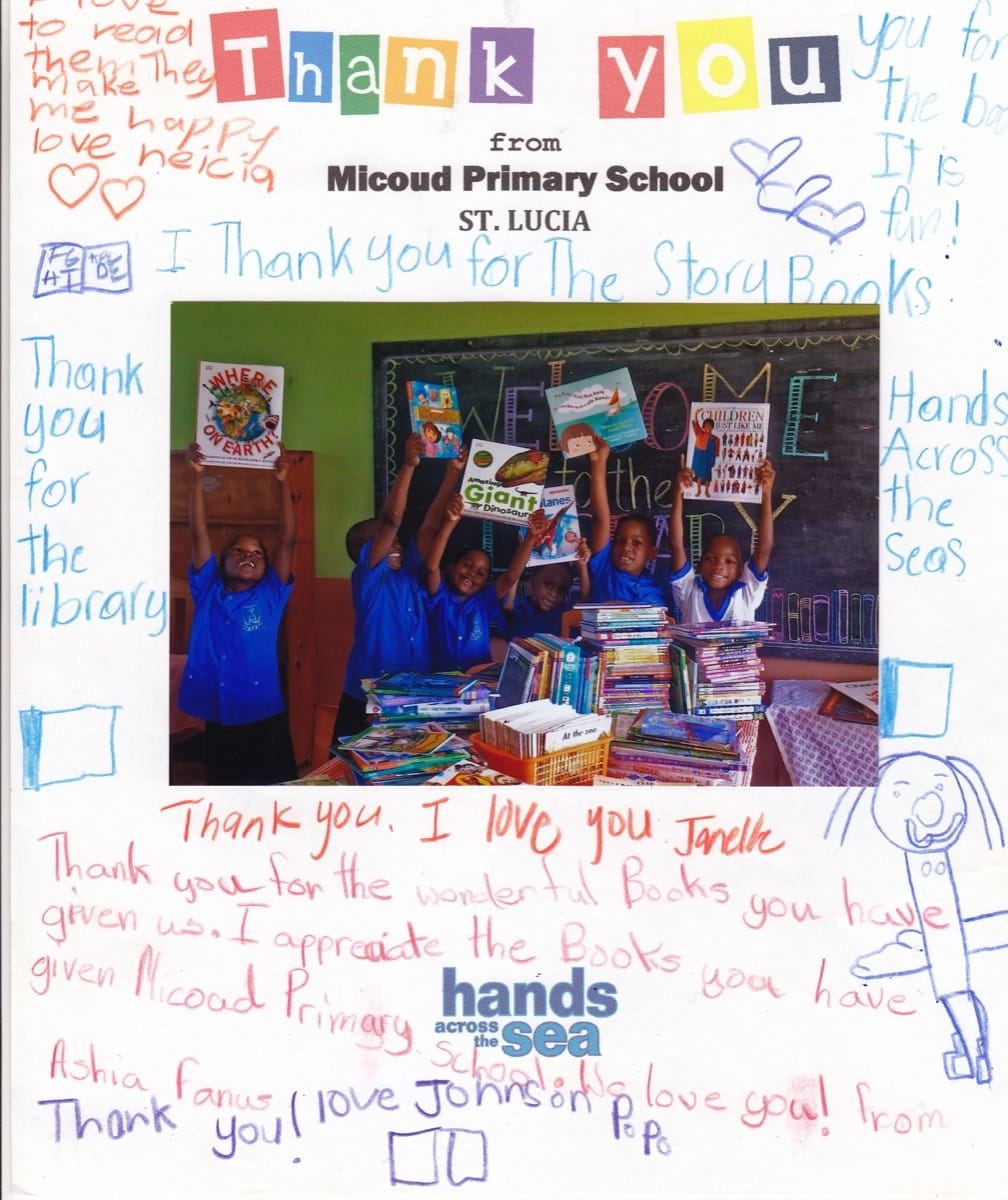 I love
to read
them They
make
me happy
love neicia
Thank you
from
Micoud Primary School
ST. LUCIA
you for
the
It is
fun!
FG
HI
DE
I Thank you for The Story Books
Thank
you
for
the
library
WHERE
ON EARTH?
Amazing
Giant
Dinosaurs
Planes
CHILDREN
JUST LIKE ME
WELCOME
to the
At the zoo
Hands
Across
the
Seas
Thank you. I love you Janelle
Thank you for the wonderful Books you have
given us. I appreciate the Books you have
given Micoud Primary
School. We love you! from
Ashia Fanus
hands
across
the sea
Thank you! love Johnson PoPo